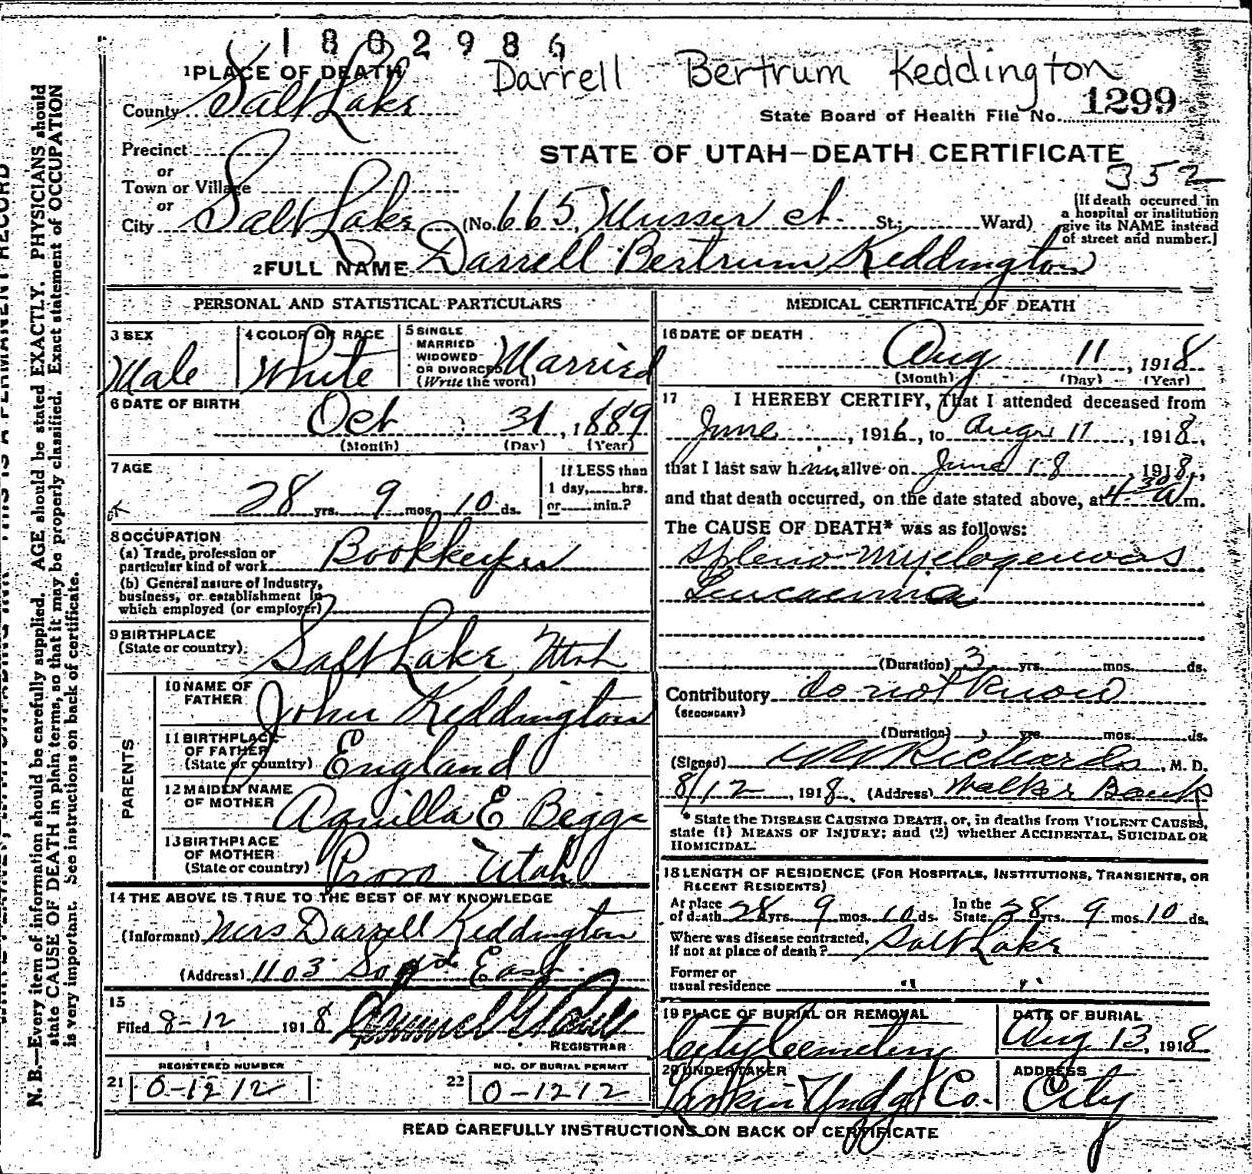 1802986
Darrell Bertrum Keddington
1 PLACE OF DEATH
County Salt Lake
State Board of Health File No. 1299
Precinct
or
Town or Village
or
STATE OF UTAH—DEATH CERTIFICATE
352
City Salt Lake (No. 665 Musser ct. St.; Ward)
[If death occurred in a hospital or institution give its NAME instead of street and number.]
2 FULL NAME Darrell Bertrum Keddington
PERSONAL AND STATISTICAL PARTICULARS
3 SEX Male
4 COLOR OR RACE White
5 SINGLE MARRIED WIDOWED OR DIVORCED (Write the word) Married
6 DATE OF BIRTH
Oct 31, 1889
(Month) (Day) (Year)
7 AGE
28 yrs. 9 mos. 10 ds.
If LESS than 1 day, hrs. or min.?
8 OCCUPATION
(a) Trade, profession or particular kind of work Bookkeeper
(b) General nature of Industry, business, or establishment in which employed (or employer)
9 BIRTHPLACE
(State or country) Salt Lake, Utah
PARENTS
10 NAME OF FATHER John Keddington
11 BIRTHPLACE OF FATHER (State or country) England
12 MAIDEN NAME OF MOTHER Aquilla E Beggs
13 BIRTHPLACE OF MOTHER (State or country) Provo Utah
14 THE ABOVE IS TRUE TO THE BEST OF MY KNOWLEDGE
(Informant) Mrs Darrell Keddington
(Address) 1103 So East
15
Filed 8-12 1918
REGISTRAR
REGISTERED NUMBER
21 0-1212
NO. OF BURIAL PERMIT
22 0-1212
MEDICAL CERTIFICATE OF DEATH
16 DATE OF DEATH
Aug 11, 1918
(Month) (Day) (Year)
17 I HEREBY CERTIFY, That I attended deceased from
June, 1916, to Aug. 11, 1918,
that I last saw him alive on June 18, 1918,
and that death occurred, on the date stated above, at 4 30 a m.
The CAUSE OF DEATH* was as follows:
Spleno-Myelogenous
Leucaemia
(Duration) 3 yrs. mos. ds.
Contributory do not know
(SECONDARY)
(Duration) yrs. mos. ds.
(Signed) Richards, M. D.
8/12, 1918. (Address) Walker Bank
* State the DISEASE CAUSING DEATH, or, in deaths from VIOLENT CAUSES,
state (1) MEANS OF INJURY; and (2) whether ACCIDENTAL, SUICIDAL OR
HOMICIDAL.
18 LENGTH OF RESIDENCE (FOR HOSPITALS, INSTITUTIONS, TRANSIENTS, OR
RECENT RESIDENTS)
At place of death 28 yrs. 9 mos. 10 ds. In the State 28 yrs. 9 mos. 10 ds.
Where was disease contracted, if not at place of death? Salt Lake
Former or usual residence " "
19 PLACE OF BURIAL OR REMOVAL
City Cemetery
DATE OF BURIAL
Aug 13, 1918
20 UNDERTAKER
Co.
ADDRESS
City
READ CAREFULLY INSTRUCTIONS ON BACK OF CERTIFICATE
N. B.—Every item of information should be carefully supplied. AGE should be stated EXACTLY. PHYSICIANS should
state CAUSE OF DEATH in plain terms, so that it may be properly classified. Exact statement of OCCUPATION
is very important. See instructions on back of certificate.